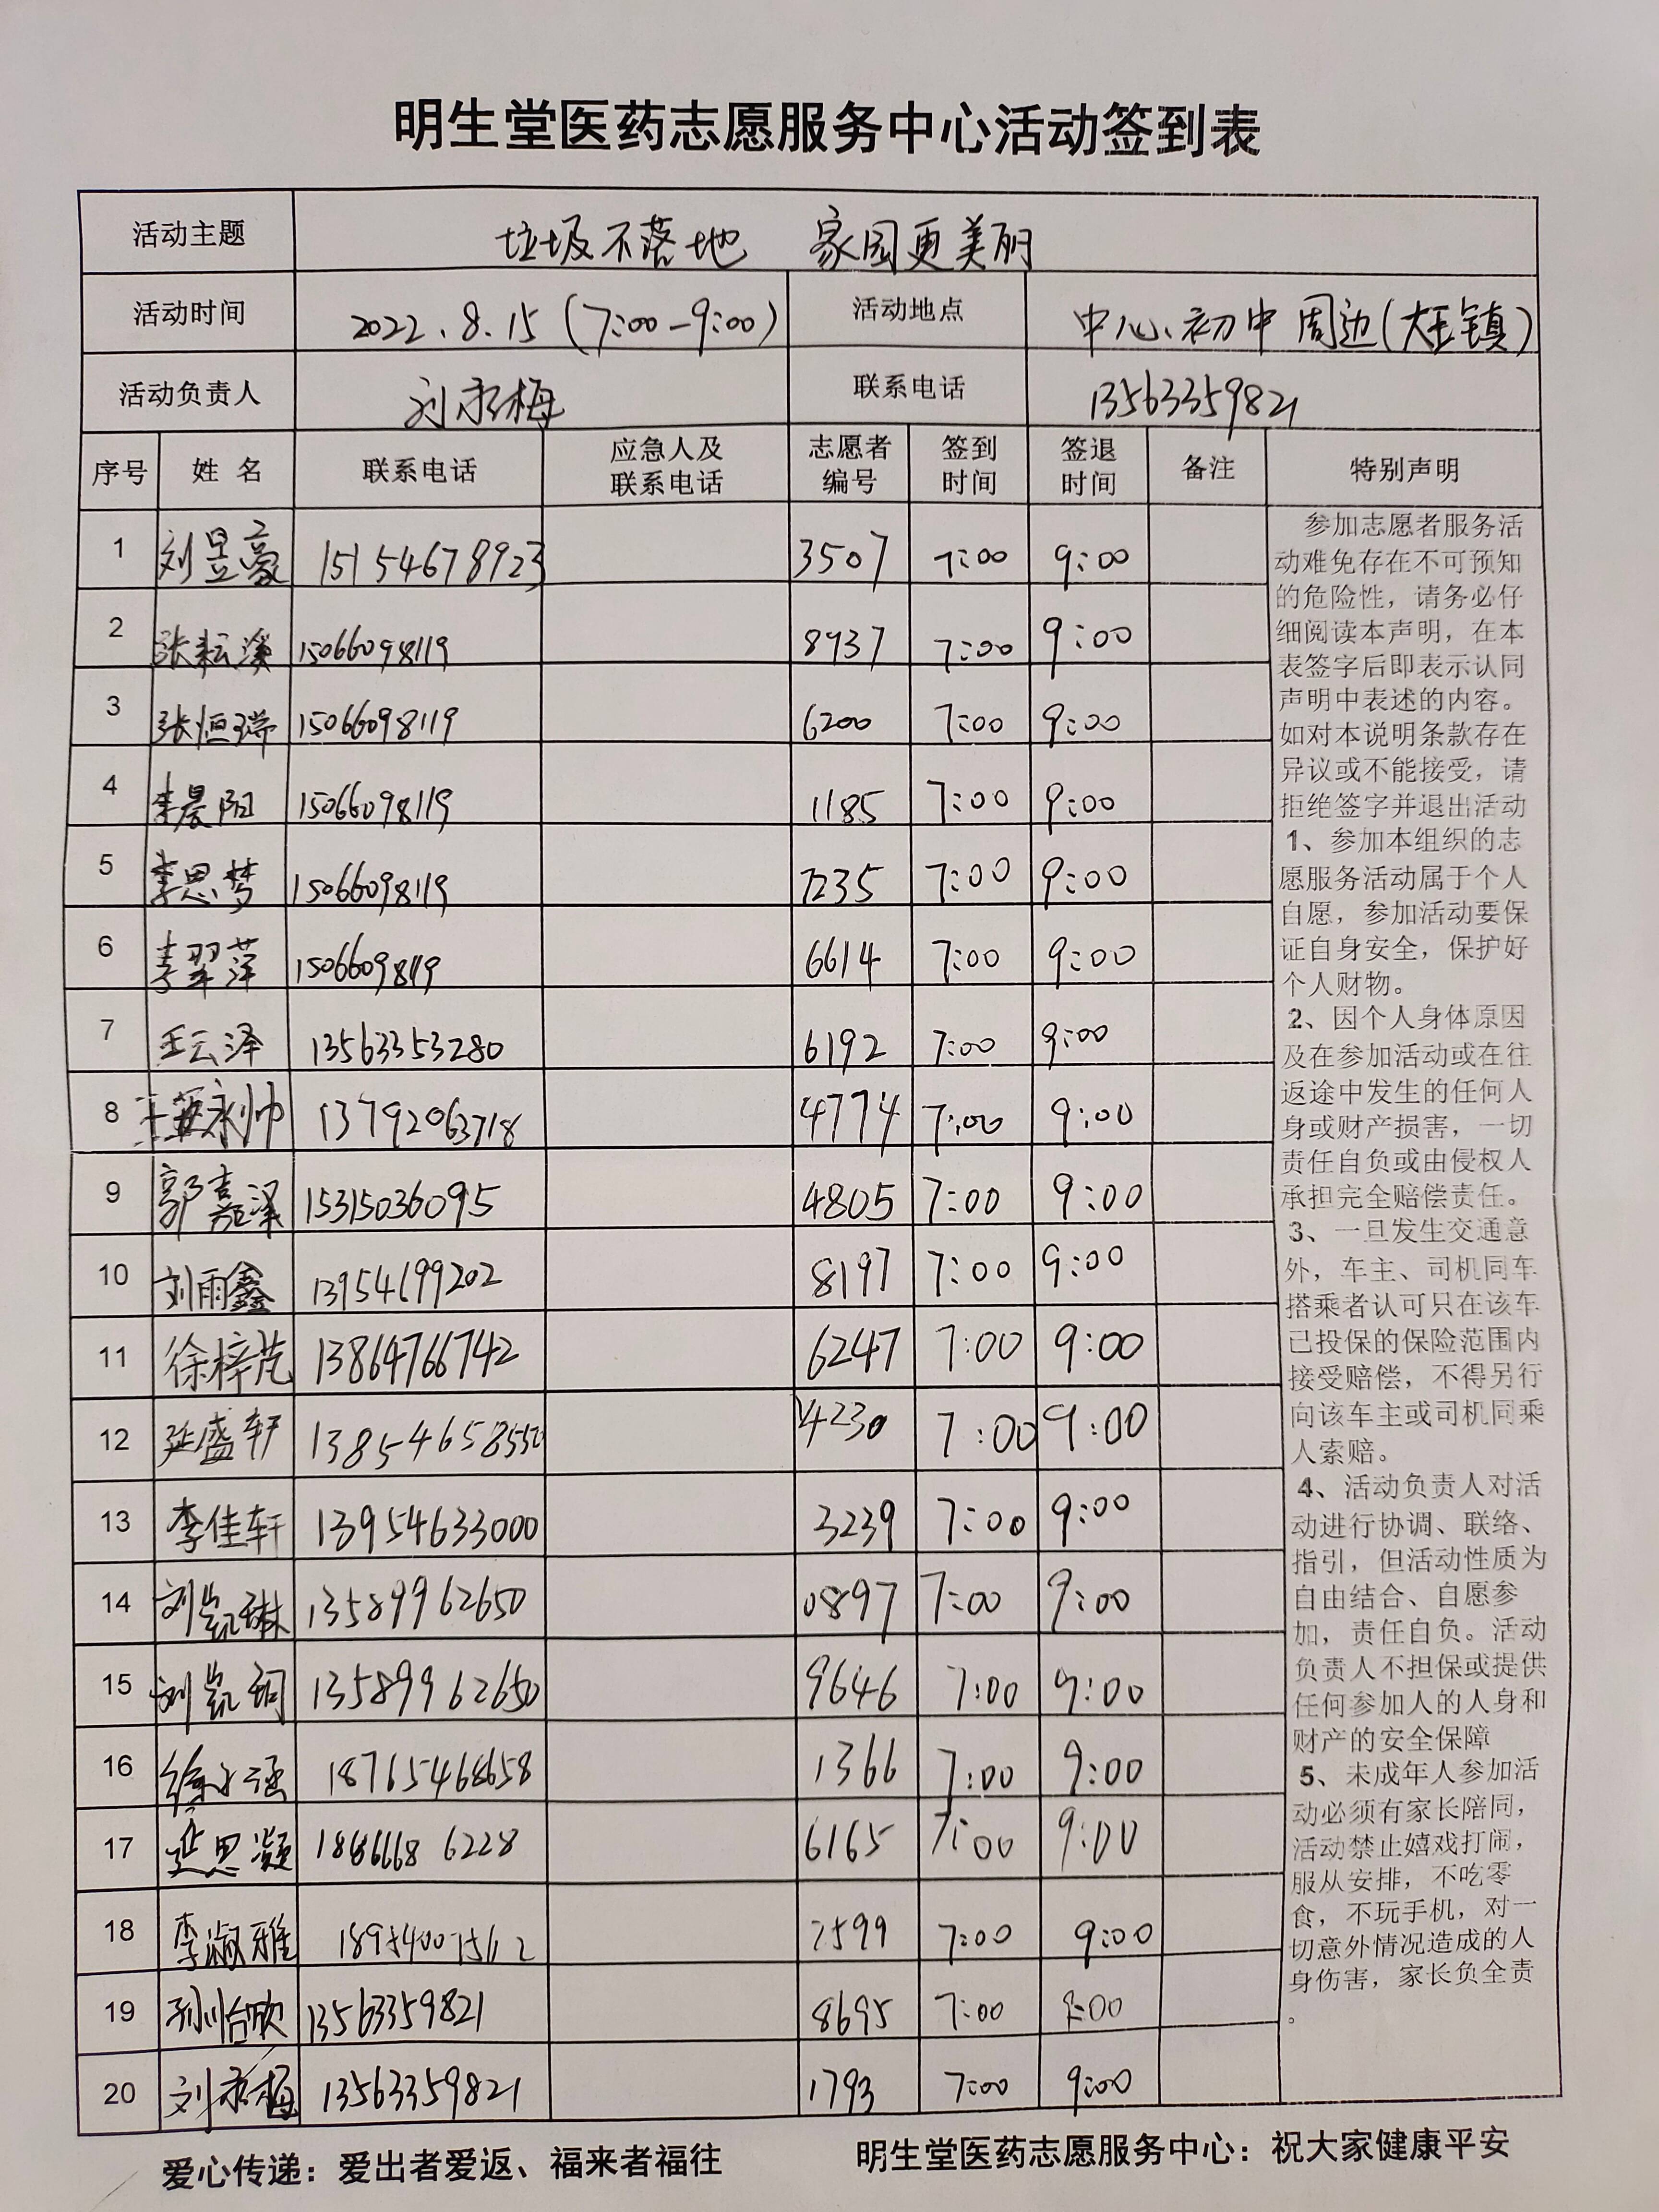 明生堂医药志愿服务中心活动签到表
活动主题 垃圾不落地 家园更美丽
活动时间 2022.8.15(7:00-9:00) 活动地点 中心初中周边(大王镇)
活动负责人 刘永梅 联系电话 13563359821
序号 姓名 联系电话 应急人及联系电话 志愿者编号 签到时间 签退时间 备注 特别声明
1 刘昱豪 15154678923 3507 7:00 9:00
2 张耘溪 15066098119 8937 7:00 9:00
3 张恒瑞 15066098119 6200 7:00 9:00
4 李晨阳 15066098119 1185 7:00 9:00
5 李思梦 15066098119 7235 7:00 9:00
6 李翠萍 1506609819 6614 7:00 9:00
7 王云泽 13563353280 6192 7:00 9:00
8 13792063718 4774 7:00 9:00
9 郭嘉泽 15315036095 4805 7:00 9:00
10 刘雨鑫 13954699202 8197 7:00 9:00
11 徐梓芃 13864766742 6247 7:00 9:00
12 延盛轩 4230 7:00 9:00
13 李佳轩 13954633000 3239 7:00 9:00
14 刘凯琳 13589962650 0897 7:00 9:00
15 刘凯珂 13589962650 9646 7:00 9:00
16 18765468658 1366 7:00 9:00
17 延思凝 6165 7:00 9:00
18 李淑雅 7:00 9:00
19 13563359821 8695 7:00 9:00
20 刘永梅 13563359821 1793 7:00 9:00
参加志愿者服务活
动难免存在不可预知
的危险性，请务必仔
细阅读本声明，在本
表签字后即表示认同
声明中表述的内容。
如对本说明条款存在
异议或不能接受，请
拒绝签字并退出活动
1、参加本组织的志
愿服务活动属于个人
自愿，参加活动要保
证自身安全，保护好
个人财物。
2、因个人身体原因
及在参加活动或在往
返途中发生的任何人
身或财产损害，一切
责任自负或由侵权人
承担完全赔偿责任。
3、一旦发生交通意
外，车主、司机同车
搭乘者认可只在该车
已投保的保险范围内
接受赔偿，不得另行
向该车主或司机同乘
人索赔。
4、活动负责人对活
动进行协调、联络、
指引，但活动性质为
自由结合、自愿参
加，责任自负。活动
负责人不担保或提供
任何参加人的人身和
财产的安全保障
5、未成年人参加活
动必须有家长陪同，
活动禁止嬉戏打闹，
服从安排，不吃零
食，不玩手机，对一
切意外情况造成的人
身伤害，家长负全责
。
爱心传递：爱出者爱返、福来者福往 明生堂医药志愿服务中心：祝大家健康平安